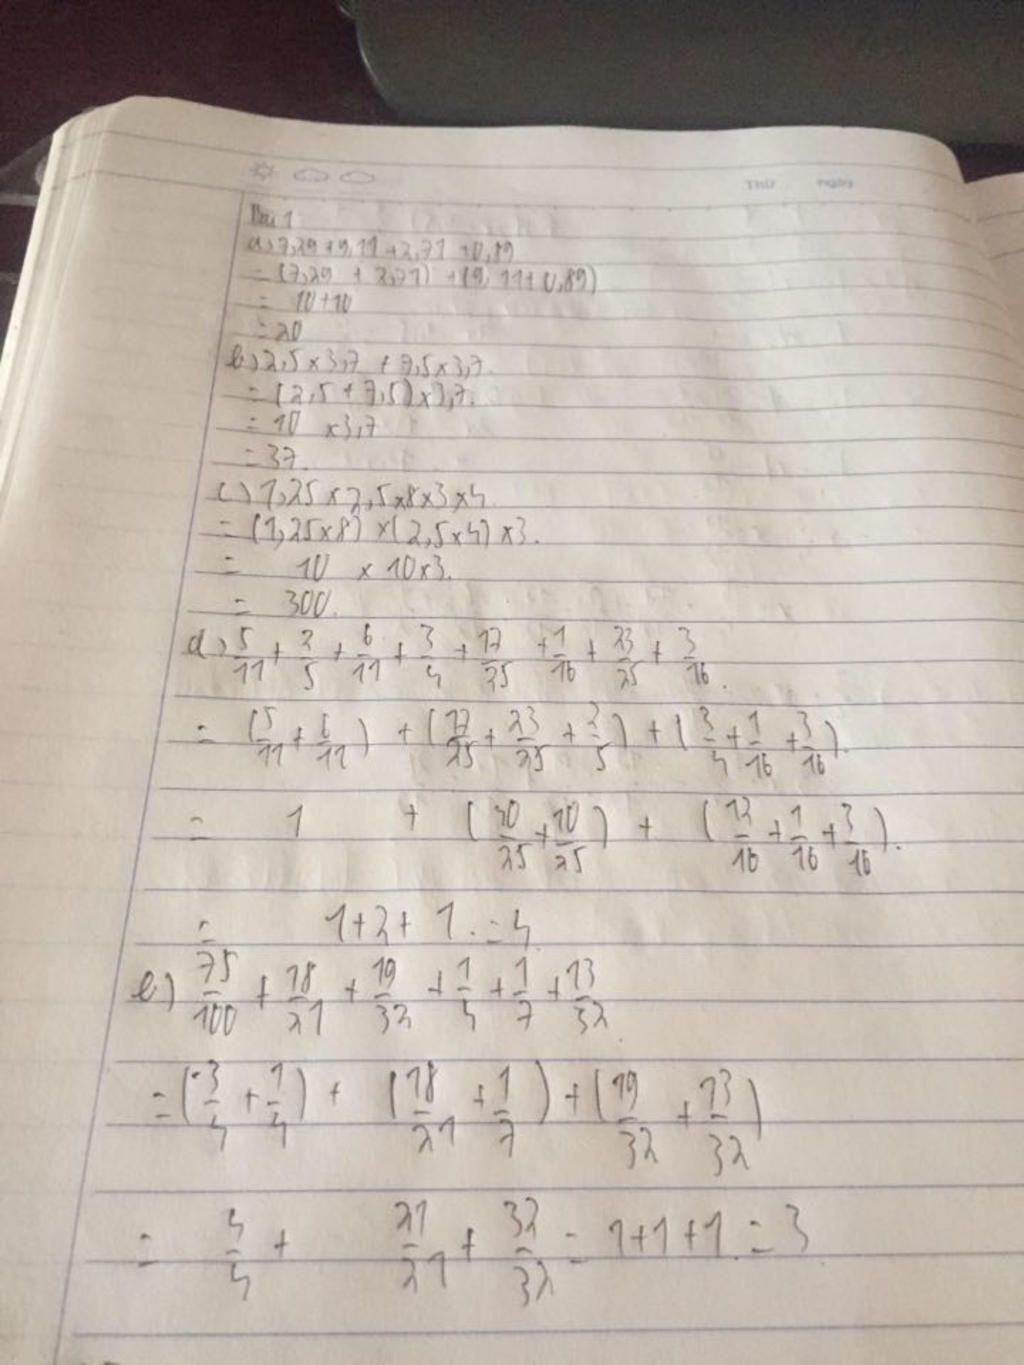 Thứ ngày
Bài 1
a) 7,29 + 9,11 + 2,71 + 0,89
= (7,29 + 2,71) + (9,11 + 0,89)
= 10 + 10
= 20
b) 2,5 × 3,7 + 7,5 × 3,7.
= (2,5 + 7,5) × 3,7.
= 10 × 3,7
= 37.
c) 1,25 × 2,5 × 8 × 3 × 4
= (1,25 × 8) × (2,5 × 4) × 3.
= 10 × 10 × 3.
= 300.
d) 5/11 + 2/5 + 6/11 + 3/4 + 17/25 + 1/16 + 23/25 + 3/16.
= (5/11 + 6/11) + (17/25 + 23/25 + 2/5) + (3/4 + 1/16 + 3/16).
= 1 + (40/25 + 10/25) + (12/16 + 1/16 + 3/16).
= 1 + 2 + 1. = 4
e) 75/100 + 18/21 + 19/32 + 1/4 + 1/7 + 13/32
= (3/4 + 1/4) + (18/21 + 1/7) + (19/32 + 13/32)
= 4/4 + 21/21 + 32/32 = 1 + 1 + 1. = 3